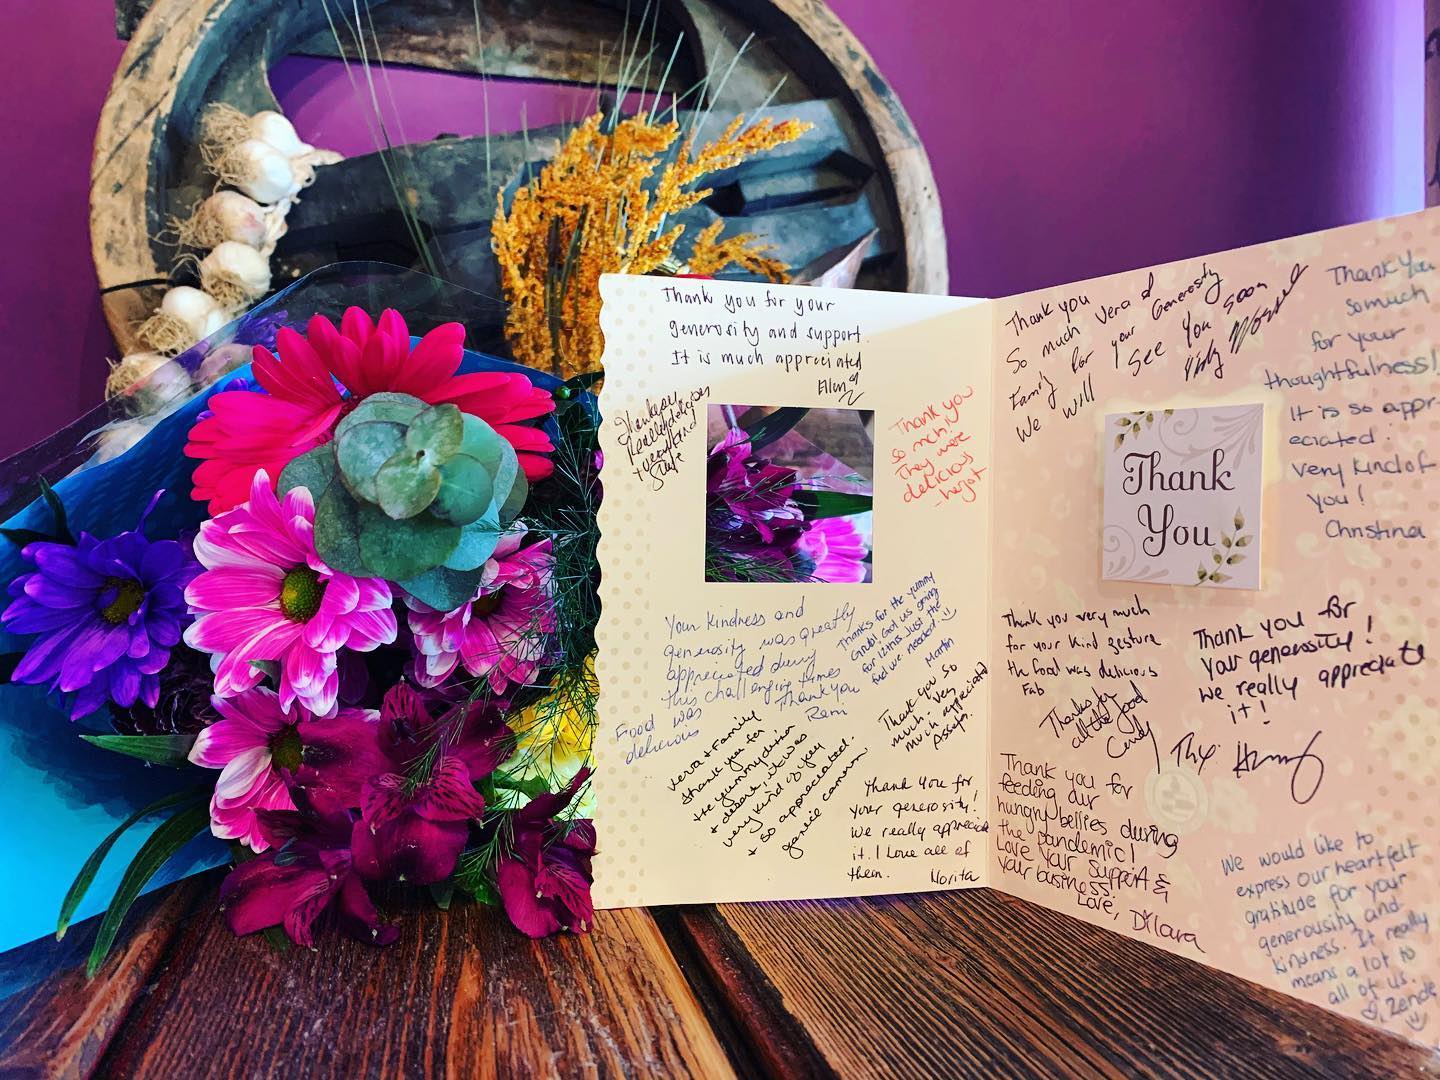 Thank you for your
generosity and support.
It is much appreciated
Ellen
Thank you
really delicious
+ very kind
Thank you
so much!
They were
delicious
Your kindness and
generosity was greatly
appreciated during
this challenging times
Thank you
Remi
Food was
delicious
Thanks for the yummy
Grub! Got us going
for 12 hrs Just the
fuel we needed! :)
Martin
Thank you so
much. Very
much appreciated
Vera + Family
thank you for
the yummy dinner
+ desert, it was
very kind of you
+ so appreciated.
Janeil Cameron
Thank you for
your generosity!
We really appreciate
it. I Love all of
them.
Norita
Thank you
so much Vera and
Family for your Generosity
We will see you soon
Thank You
so much
for your
thoughtfulness!
It is so appr-
eciated.
Very kind of
you!
Christina
Thank
You
Thank you very much
for your kind gesture
the food was delicious
Fab
Thanks for
all the food
Cindy
Thank you for
your generosity!
we really appreciate
it!
Thx
Thank you for
feeding our
hungry bellies during
the pandemic!
Love your Support &
your business!
Love, Dilara
We would like to
express our heartfelt
gratitude for your
generousity and
kindness. It really
means a lot to
all of us.
:) Zende :)